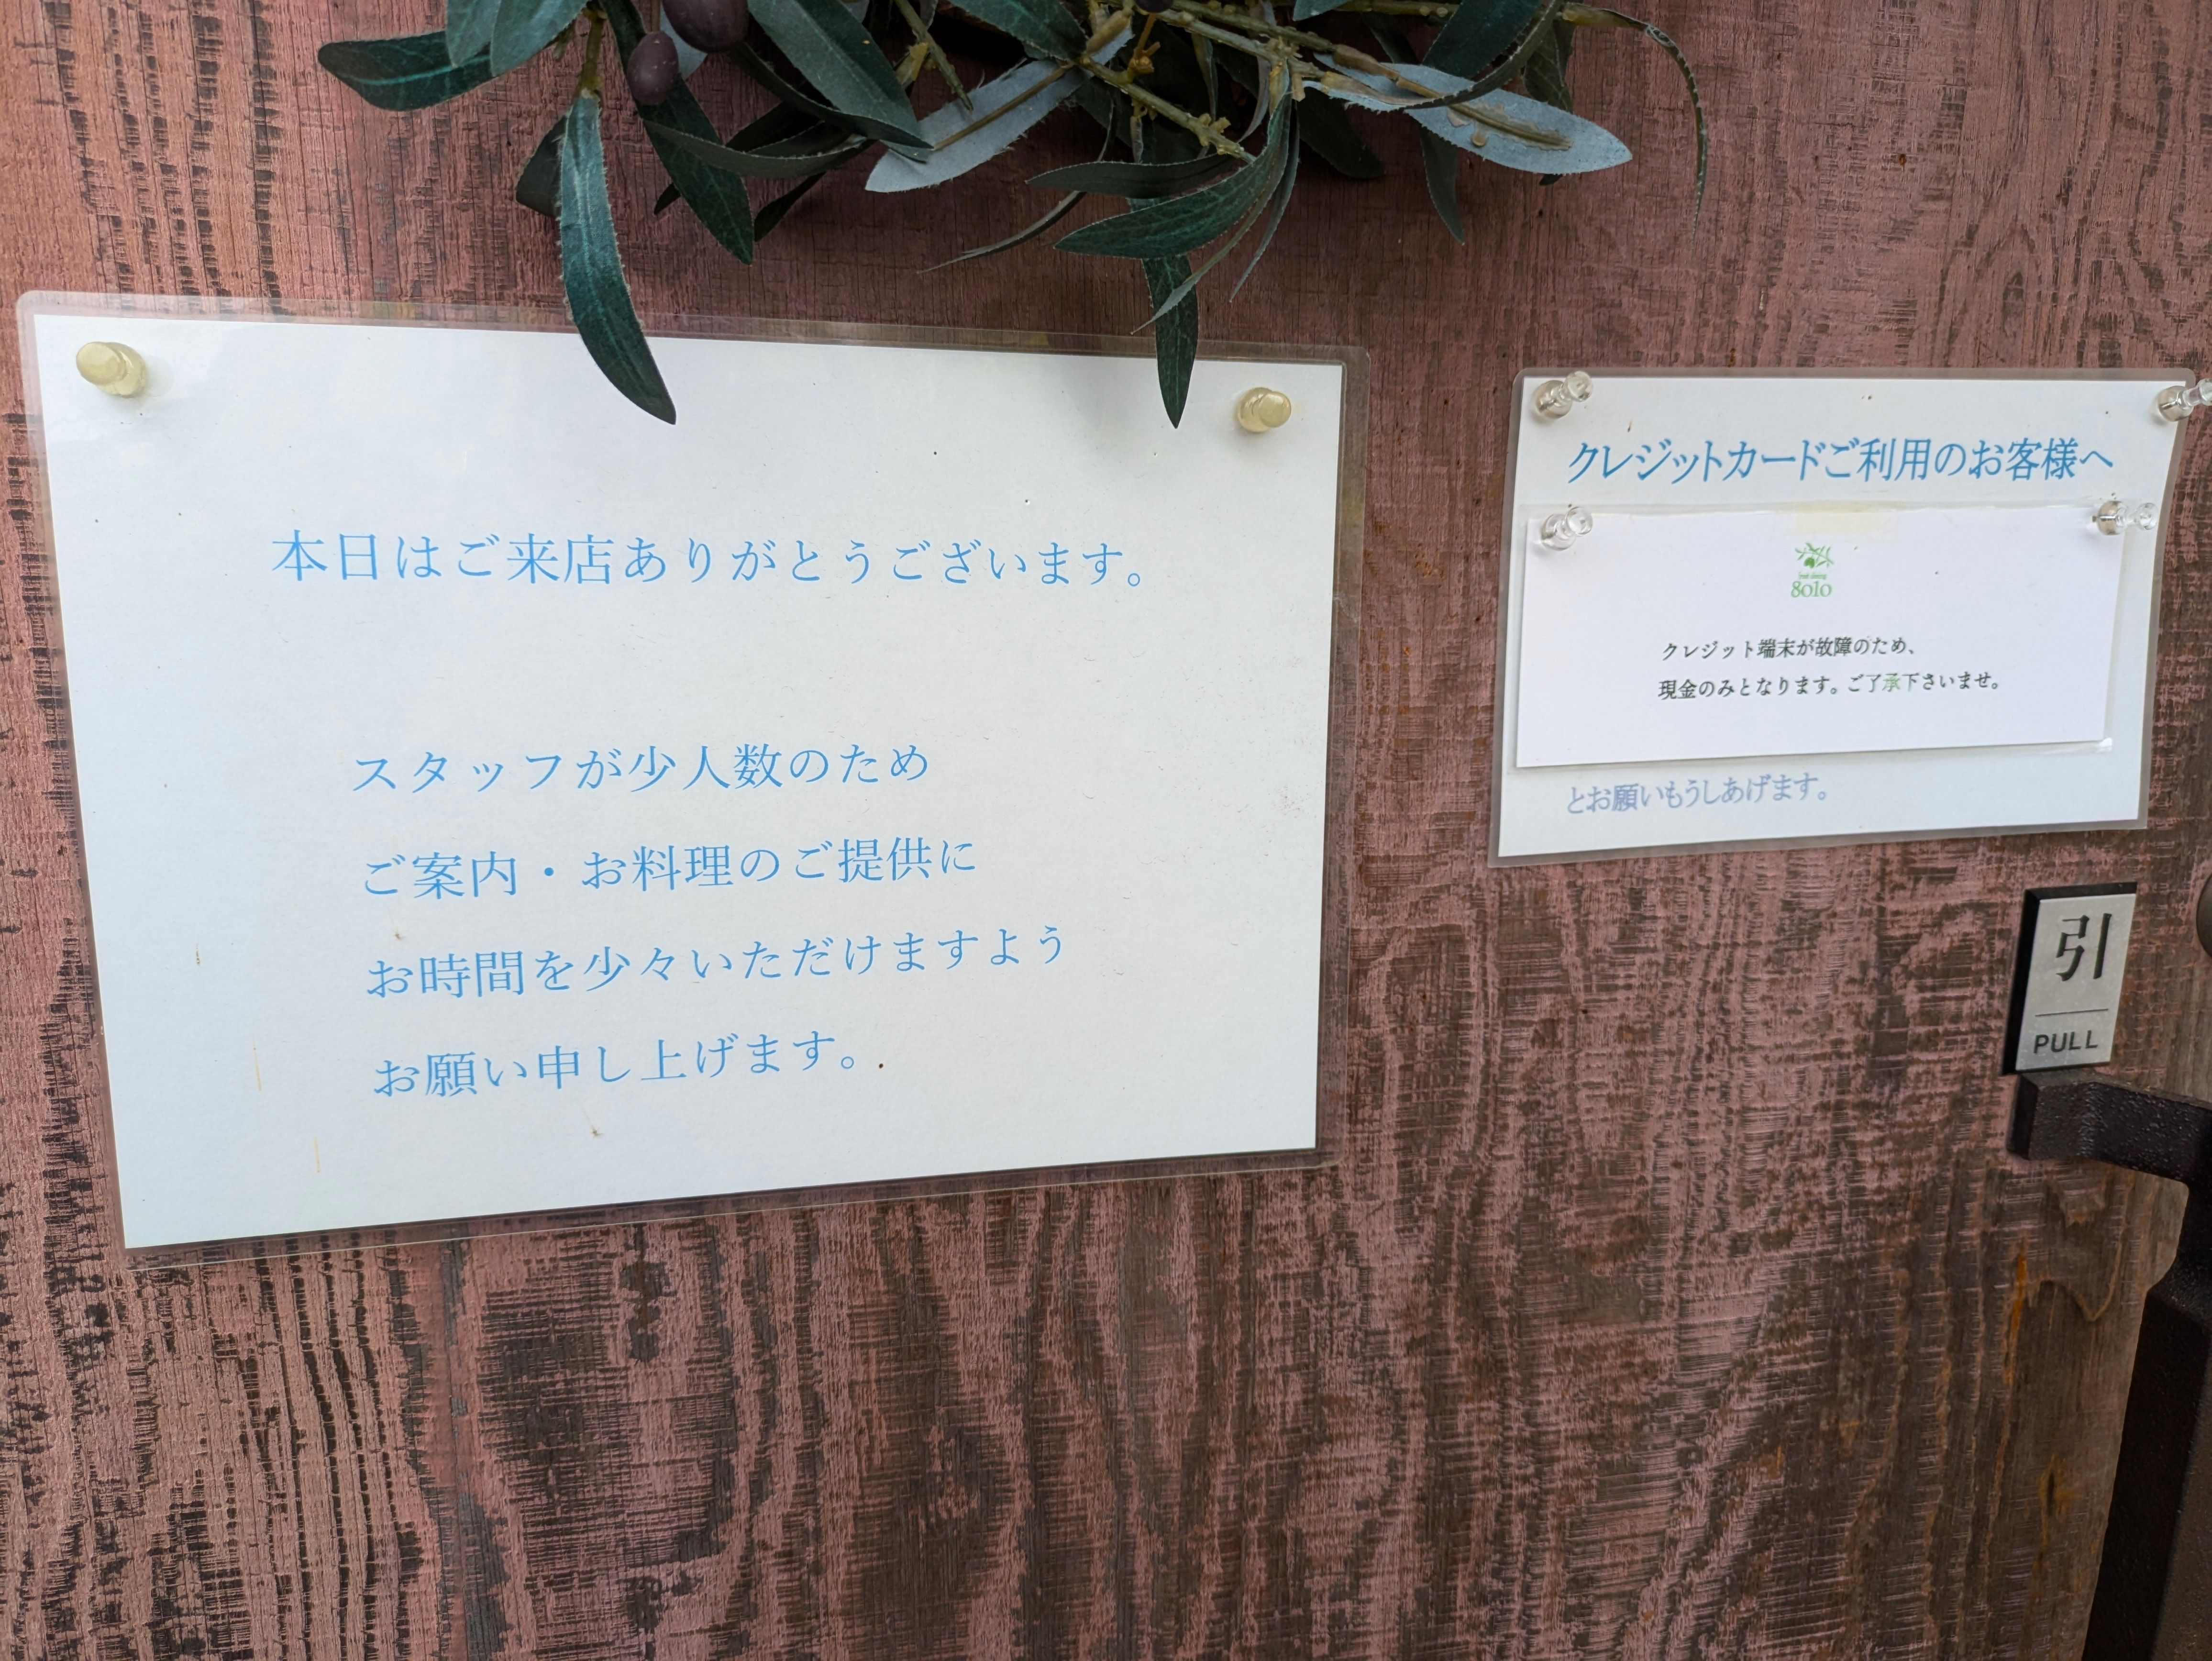 本日はご来店ありがとうございます。
スタッフが少人数のため
ご案内・お料理のご提供に
お時間を少々いただけますよう
お願い申し上げます。
クレジットカードご利用のお客様へ
8010
クレジット端末が故障のため、
現金のみとなります。ご了承下さいませ。
とお願いもうしあげます。
引
PULL